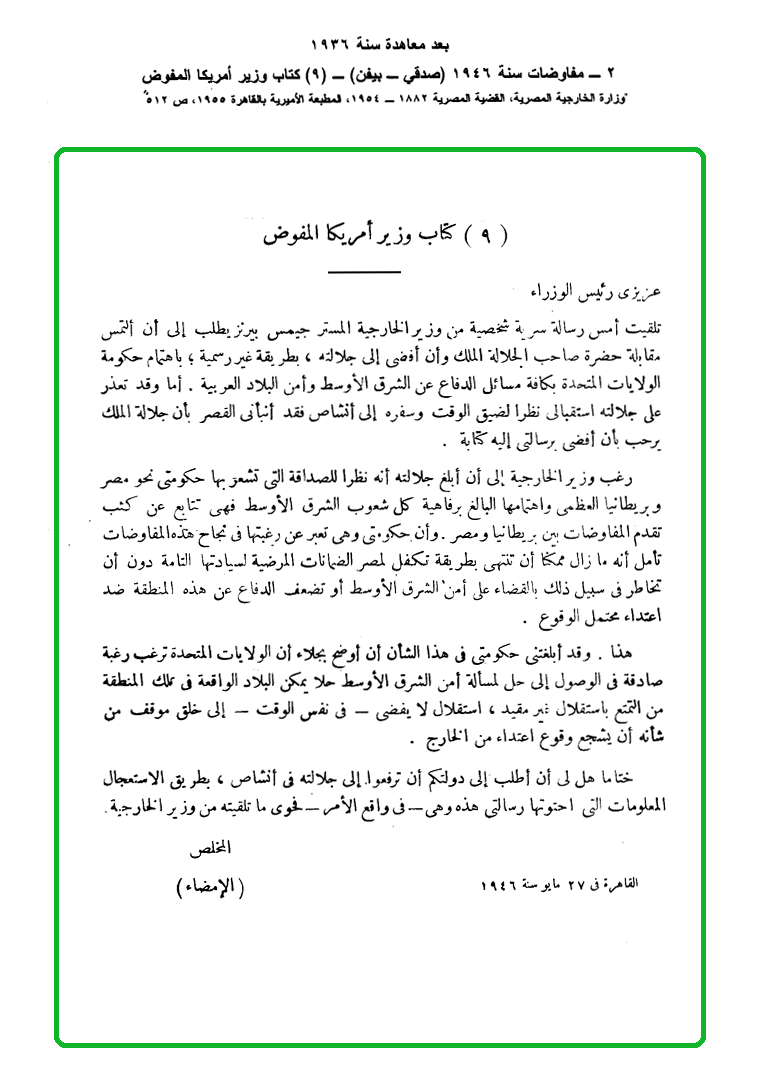 بعد معاهدة سنة ١٩٣٦
٢ ــ مفاوضات سنة ١٩٤٦ (صدقي ــ بيفن) ــ (٩) كتاب وزير أمريكا المفوض
"وزارة الخارجية المصرية، القضية المصرية ١٨٨٢ ــ ١٩٥٤، المطبعة الأميرية بالقاهرة ١٩٥٥، ص ٥١٢"
( ٩ ) كتاب وزير أمريكا المفوض
عزيزى رئيس الوزراء
تلقيت أمس رسالة سرية شخصية من وزير الخارجية المستر جيمس بيرنز يطلب إلى أن ألتمس
مقابلة حضرة صاحب الجلالة الملك وأن أفضى إلى جلالته ، بطريقة غير رسمية ؛ باهتمام حكومة
الولايات المتحدة بكافة مسائل الدفاع عن الشرق الأوسط وأمن البلاد العربية . أما وقد تعذر
على جلالته استقبالى نظرا لضيق الوقت وسفره إلى أنشاص فقد أنبأنى القصر بأن جلالة الملك
يرحب بأن أفضى برسالتى إليه كتابة .
رغب وزير الخارجية إلى أن أبلغ جلالته أنه نظرا للصداقة التى تشعر بها حكومتى نحو مصر
وبريطانيا العظمى واهتمامها البالغ برفاهية كل شعوب الشرق الأوسط فهى تتابع عن كثب
تقدم المفاوضات بين بريطانيا ومصر . وأن حكومتى وهى تعبر عن رغبتها فى نجاح هذه المفاوضات
تأمل أنه ما زال ممكنا أن تنتهى بطريقة تكفل لمصر الضمانات المرضية لسيادتها التامة دون أن
تخاطر فى سبيل ذلك بالقضاء على أمن الشرق الأوسط أو تضعف الدفاع عن هذه المنطقة ضد
اعتداء محتمل الوقوع .
هذا . وقد أبلغتنى حكومتى فى هذا الشأن أن أوضح بجلاء أن الولايات المتحدة ترغب رغبة
صادقة فى الوصول إلى حل لمسألة أمن الشرق الأوسط حلا يمكن البلاد الواقعة فى تلك المنطقة
من التمتع باستقلال غير مقيد ، استقلال لا يفضى ــ فى نفس الوقت ــ إلى خلق موقف من
شأنه أن يشجع وقوع اعتداء من الخارج .
ختاما هل لى أن أطلب إلى دولتكم أن ترفعوا إلى جلالته فى أنشاص ، بطريق الاستعجال
المعلومات التى احتوتها رسالتى هذه وهى ــ فى واقع الأمر ــ فحوى ما تلقيته من وزير الخارجية.
المخلص
القاهرة فى ٢٧ مايو سنة ١٩٤٦
(الإمضاء)